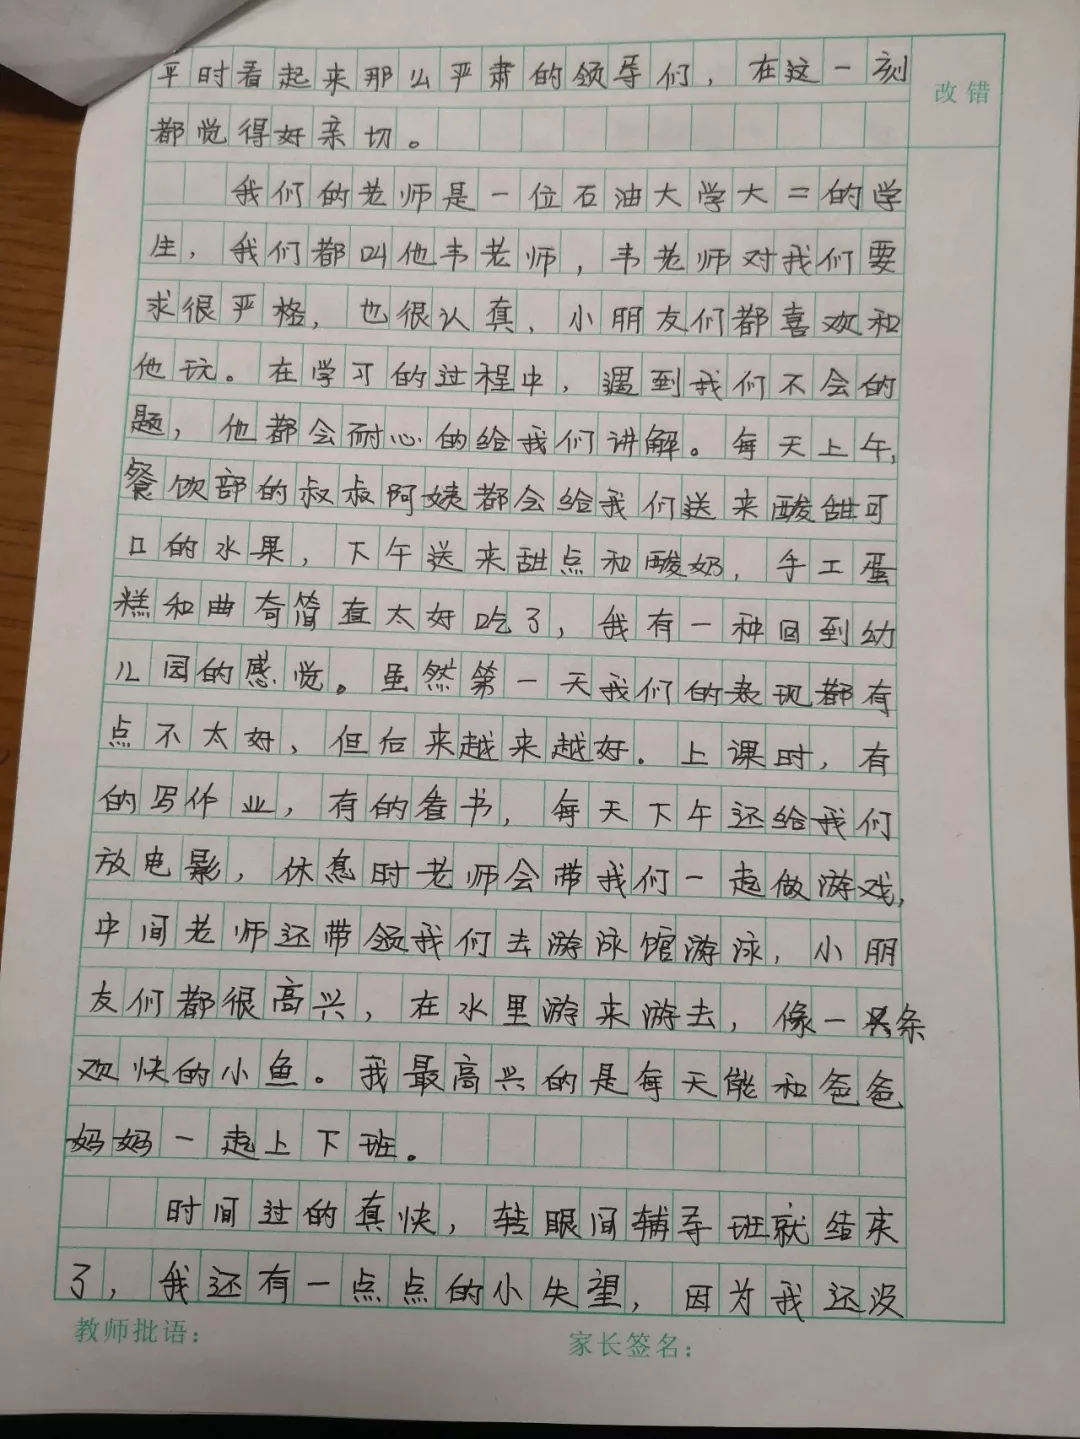 平时看起来那么严肃的领导们，在这一刻
改错
都觉得好亲切。
我们的老师是一位石油大学大二的学
生，我们都叫他韦老师，韦老师对我们要
求很严格，也很认真，小朋友们都喜欢和
他玩。在学习的过程中，遇到我们不会的
题，他都会耐心的给我们讲解。每天上午，
餐饮部的叔叔阿姨都会给我们送来酸甜可
口的水果，下午送来甜点和酸奶，手工蛋
糕和曲奇简直太好吃了，我有一种回到幼
儿园的感觉。虽然第一天我们的表现都有
点不太好，但后来越来越好。上课时，有
的写作业，有的看书，每天下午还给我们
放电影，休息时老师会带我们一起做游戏，
中间老师还带领我们去游泳馆游泳，小朋
友们都很高兴，在水里游来游去，像一条
欢快的小鱼。我最高兴的是每天能和爸爸
妈妈一起上下班。
时间过的真快，转眼间辅导班就结束
了，我还有一点点的小失望，因为我还没
教师批语：
家长签名：